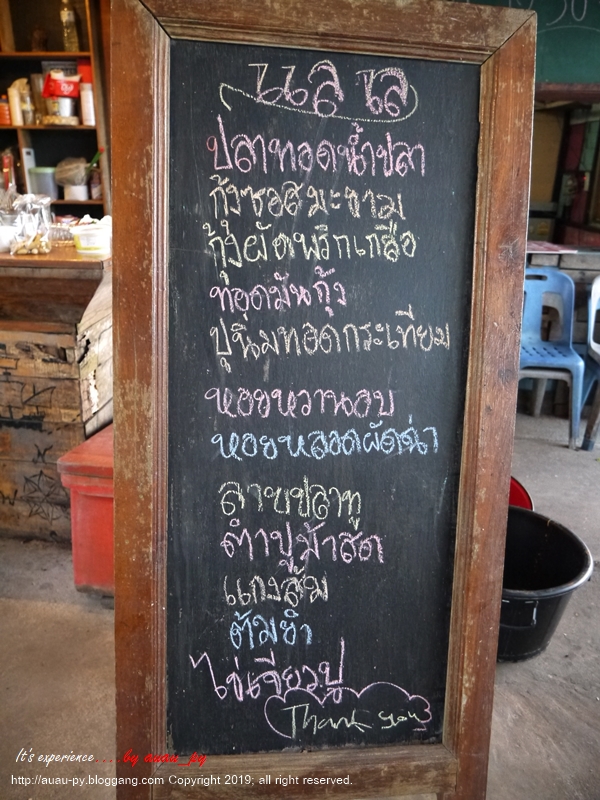 แลเล
ปลาทอดน้ำปลา
กุ้งซอสมะขาม
กุ้งผัดพริกเกลือ
ทอดมันกุ้ง
ปูนิ่มทอดกระเทียม
หอยหวานอบ
หอยหลอดผัดฉ่า
ลาบปลาทู
ตำปูม้าสด
แกงส้ม
ต้มยำ
ไข่เจียวปู
Thank you
It's experience..... by auau_py
http://auau-py.bloggang.com Copyright 2019; all right reserved.